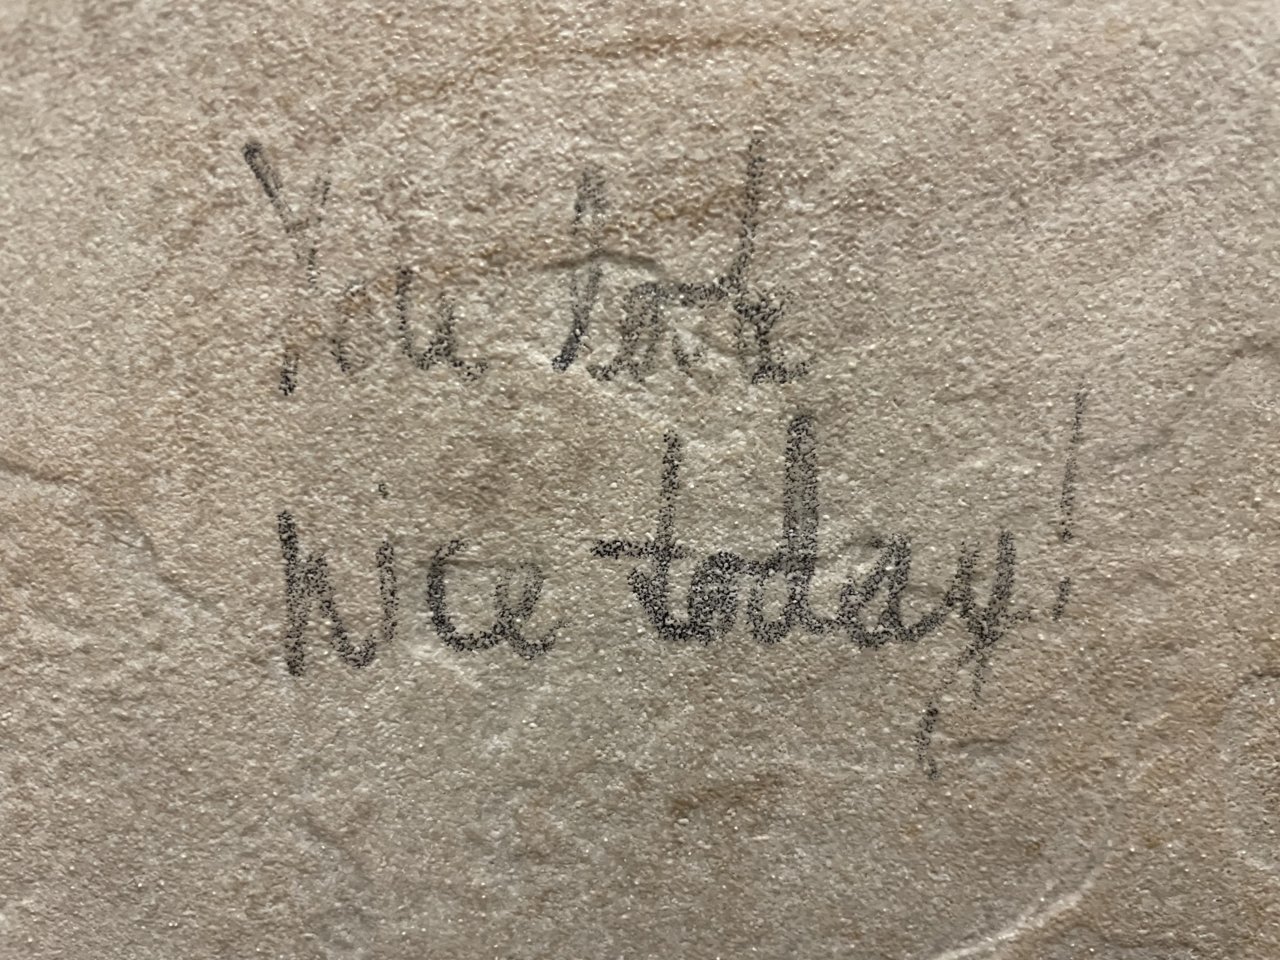 You look
Nice today!